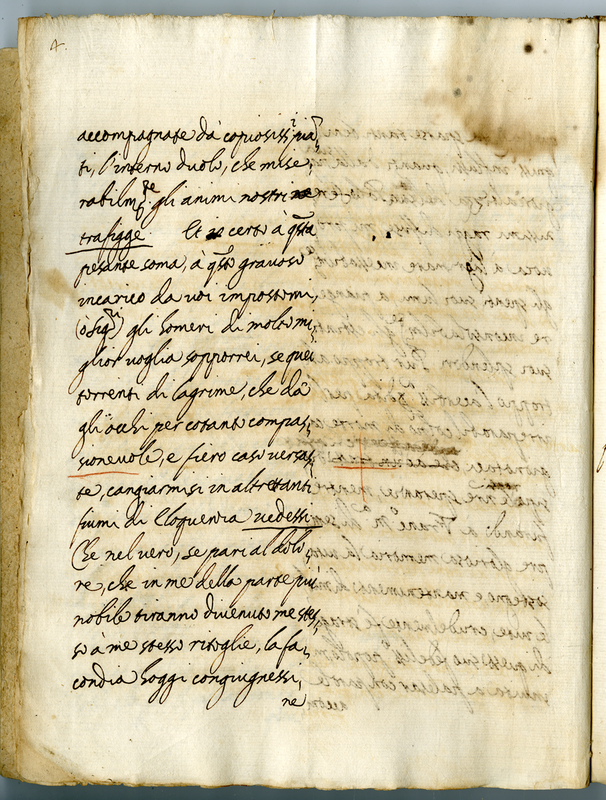 4.
accompagnate da copiosiss.i pia͂,
ti, l'interno duolo, che mise,
rabilm.te gli animi nostri
trafigge. Et certo à q͂sta
pesante soma, à q͂sto gravoso
incarico da voi impostomi,
(ò Sig.ri) gli homeri di molto mi,
glior voglia sopporrei, se quei
torrenti di lagrime, che da
gli occhi per cotanto compas,
sionevole, e fiero caso versa,
te, cangiarmisi in altretanti
fiumi di Eloquenza vedessi.
Che nel vero, se pari al dolo,
re, che in me della parte più
nobile tiranno divenuto me stes,
so à me stesso ritoglie, la fa,
condia hoggi congiugnessi,
ne